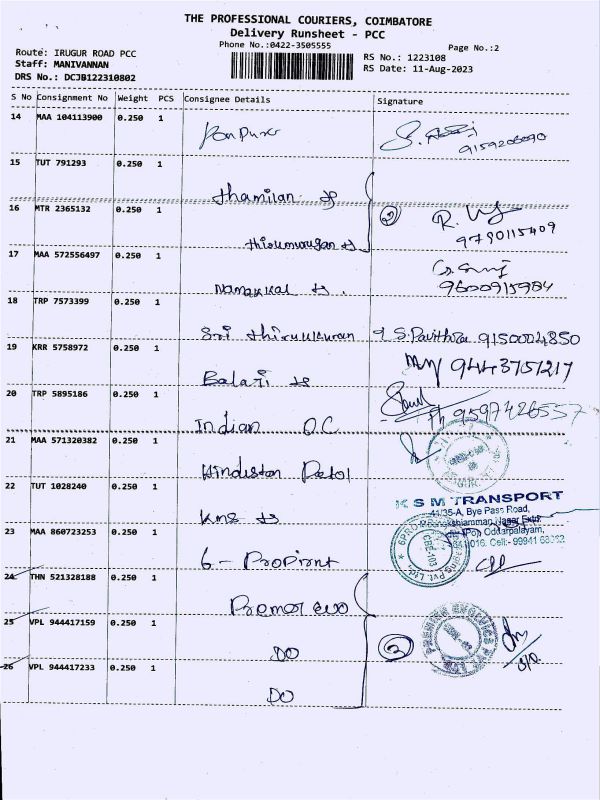 THE PROFESSIONAL COURIERS, COIMBATORE
Delivery Runsheet - PCC
Phone No.:0422-3505555
Page No.:2
Route: IRUGUR ROAD PCC
Staff: MANIVANNAN
DRS No.: DCJB122310802
RS No.: 1223108
RS Date: 11-Aug-2023
S No Consignment No Weight PCS Consignee Details Signature
14 MAA 104113900 0.250 1
9159206090
15 TUT 791293 0.250 1 thamilan
16 MTR 2365132 0.250 1 thirumurugan
2
9790115409
17 MAA 572556497 0.250 1 Namakkal
9600915984
18 TRP 7573399 0.250 1 Sri
S. Pavithra 9150004850
19 KRR 5758972 0.250 1 Balaji
9443751217
20 TRP 5895186 0.250 1 Indian O.C
Ph 9597426557
21 MAA 571320382 0.250 1 Hindustan
22 TUT 1028240 0.250 1 Kms
K S M TRANSPORT
41/35-A, Bye Pass Road,
(Po) Oddarpalayam,
016. Cell:- 99941
23 MAA 860723253 0.250 1 6-
24 THN 521328188 0.250 1
25 VPL 944417159 0.250 1 DO
3
26 VPL 944417233 0.250 1 DO